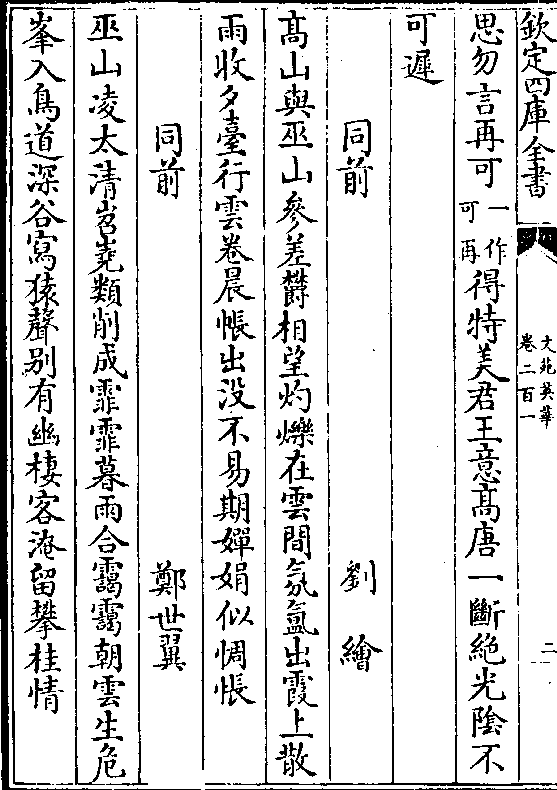 欽定四庫全書
文苑英華
卷二百一
二
思勿言再可一作可再得特美君王意高唐一斷絶光陰不
可遲
同前 劉繪
高山與巫山參差欝相望灼爍在雲間氛氲出霞上散
雨收夕臺行雲卷晨帳出没不易期嬋娟似惆悵
同前 鄭世翼
巫山凌太清岧嶤類削成霏霏暮雨合靄靄朝雲生危
峯入鳥道深谷寫猿聲别有幽棲客淹留攀桂情